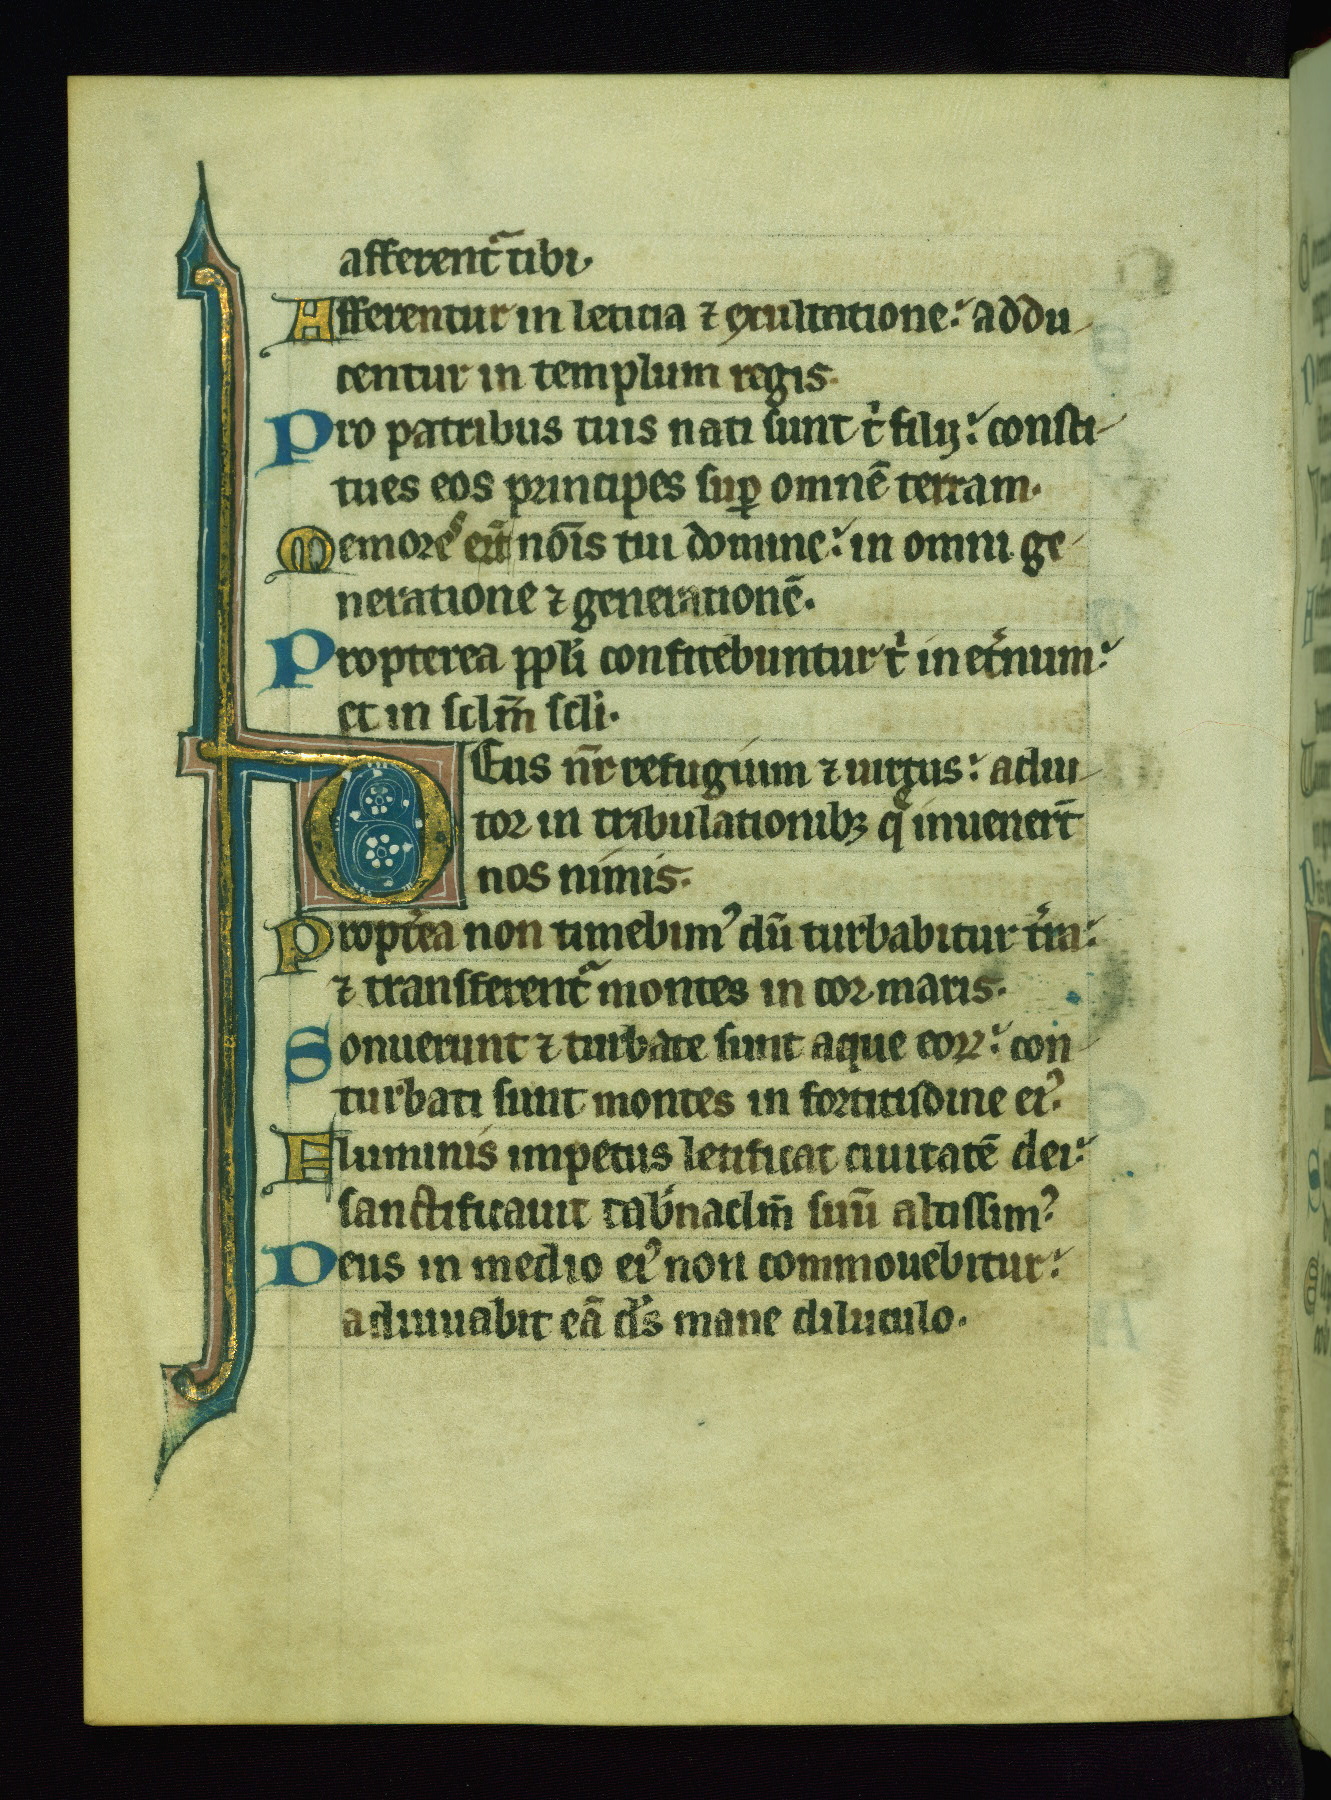 afferent᷑ tibi.
Afferentur in leticia ⁊ exultatione: addu
centur in templum regis.
Pro patribus tuis nati sunt t̾ filij: consti
tues eos principes suꝑ omnē terram.
Memores er̄t nōis tui domine: in omni ge
neratione ⁊ generationē.
Propterea ppl̄i confitebuntur t̾ in et̾num:
et in sclm̄ scli.
Deus nr̄ refugium ⁊ uirtus: adiu
tor in tribulationibꝫ q̄ inuenert̄
nos nimis.
Propt̾ea non timebimꝰ dū turbabitur t̾ra:
⁊ transferent᷑ montes in cor maris.
Sonuerunt ⁊ turbate sunt aque eoꝝ: con
turbati sunt montes in fortitudine eiꝰ.
Fluminis impetus letificat ciuitatē dei:
sanctificauit tab̾naclm̄ suū altissimꝰ
Deus in medio eiꝰ non commouebitur:
adiuuabit eā d̄s mane diluculo.